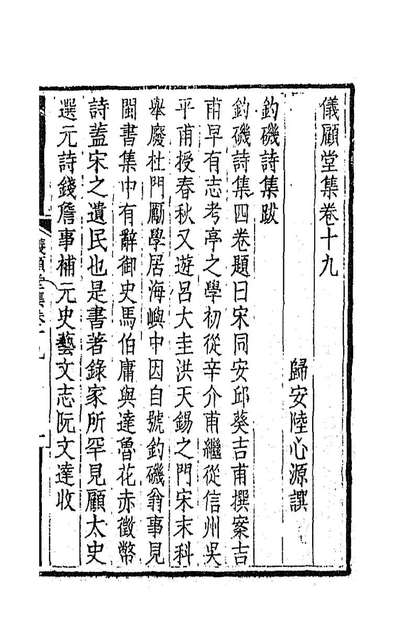 儀顧堂集卷十九
歸安陸心源譔
釣磯詩集跋
釣磯詩集四卷題曰宋同安邱葵吉甫撰案吉
甫早有志考亭之學初從辛介甫繼從信州吳
平甫授春秋又遊呂大圭洪天錫之門宋末科
舉廢杜門勵學居海嶼中因自號釣磯翁事見
閩書集中有辭御史馬伯庸與達魯花赤徵幣
詩蓋宋之遺民也是書著錄家所罕見顧太史
選元詩錢詹事補元史藝文志阮文達收